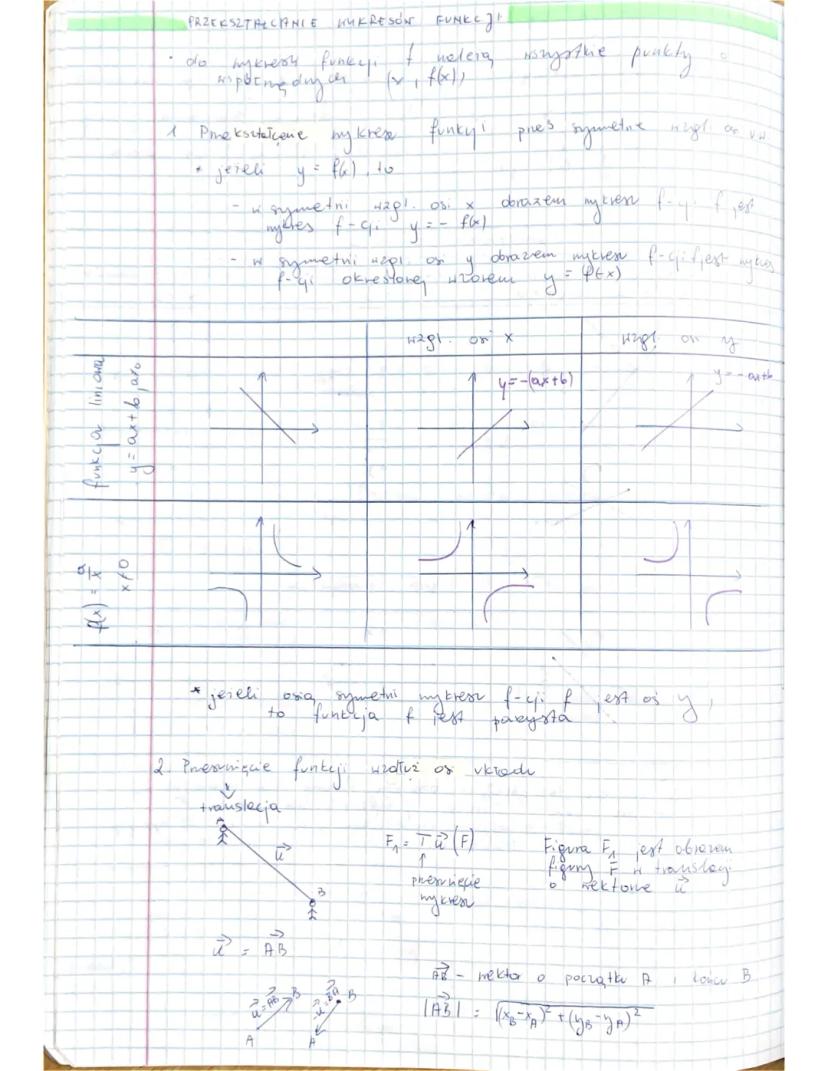 PRZEKSZTAŁCANIE WYKRESÓW FUNKCJI
• do wykresu funkcji f należą wszystkie punkty o
współrzędnych (x, f(x))
1 Przekształcenie wykresu funkcji przez symetrię wzgl. osi
* jeżeli y = f(x), to
- w symetrii wzgl. osi x obrazem wykresu f-cji f jest
wykres f-cji y = - f(x)
- w symetrii wzgl. osi y obrazem wykresu f-cji f jest wykres
f-cji określonej wzorem y = f(-x)
wzgl. osi x wzgl. osi y
funkcja liniowa
y = ax + b, a≠0
y = -(ax+b)
y = - ax+b
f(x) = a/x
x≠0
* jeżeli osią symetrii wykresu f-cji f jest oś y,
to funkcja f jest parzysta
2. Przesunięcie funkcji wzdłuż osi układu
translacja
A
u⃗
B
F₁ = T u⃗ (F)
przesunięcie
wykresu
Figura F₁ jest obrazem
figury F w translacji
o wektorze u⃗
u⃗ = AB⃗
u⃗ = AB⃗ B
A
-u⃗ = BA⃗ B
A
AB⃗ - wektor o początku A i końcu B
|AB⃗| = √(x_B-x_A)² + (y_B-y_A)²